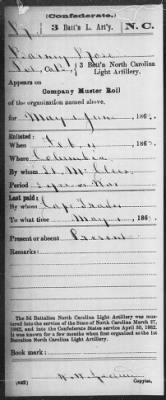 (Confederate.)
3 Batt'n L. Art'y. N. C.
3 Batt'n North Carolina
Light Artillery.
Appears on
Company Muster Roll
of the organization named above,
for May & June, 186
Enlisted:
When Feb 11, 186
Where Columbia
By whom Lt. M
Period 3 yrs or War
Last paid:
By whom Capt.
To what time May 1, 186
Present or absent Present
Remarks:
The 3d Battalion North Carolina Light Artillery was mus-
tered into the service of the State of North Carolina March 27,
1862, and into the Confederate States service April 30, 1862.
It was known for a few months when first organized as the 2d
Battalion North Carolina Light Artillery.
Book mark:
(642) Copyist.